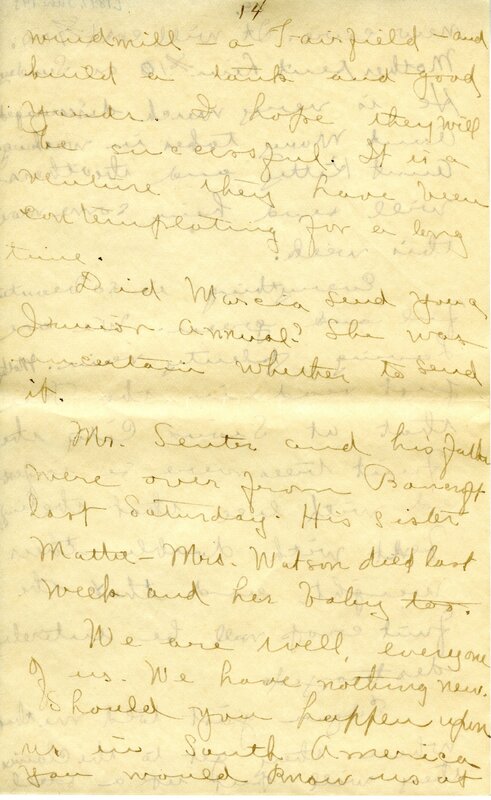 14
windmill - a Fairfield - and
build a tank and good
yards. I hope they will
be successful. It is a
venture they have been
contemplating for a long
time.
Did Marcia send you a
Junior Annual? She was
uncertain whether to send
it.
Mr. Senter and his father
were over from Bancroft
last Saturday. His sister
Mattie - Mrs. Watson died last
week and her baby too.
We are well, everyone
of us. We have nothing new.
Should you happen upon
us in South America
you would know us at